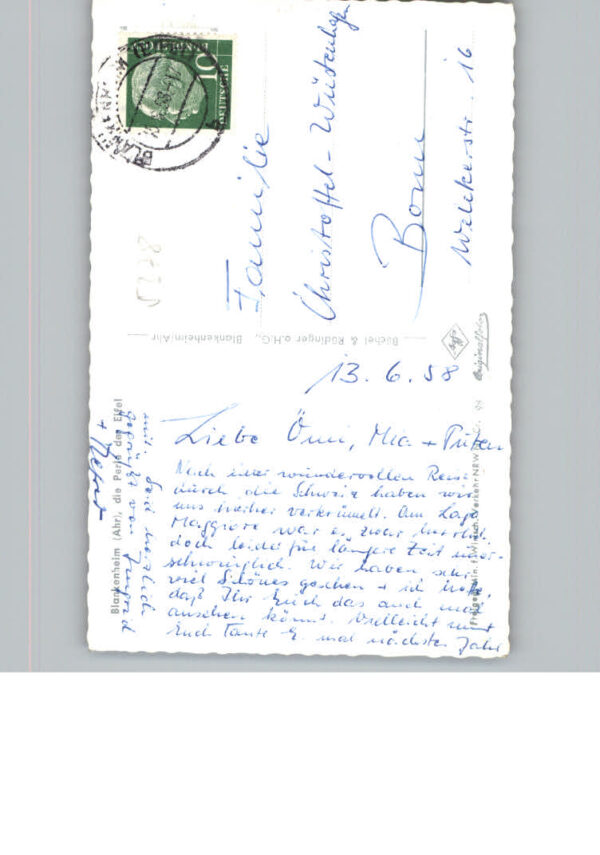 DEUTSCHE BUNDESPOST
10
BLANKENHEIM
Familie
Christoffel-Wüstenhöfer
Bonn
Welckerstr. 16
5238
Büchel & Rüdinger o.H.G., Blankenheim/Ahr
Agfa
Originalfoto
13. 6. 58
Liebe Ömi, Mia +
Nach einer wundervollen Reise
durch die Schweiz haben wir
uns hierher verkrümelt. Am Lago
Maggiore war es zwar herrlich
doch leider für längere Zeit uner-
schwinglich. Wir haben sehr
viel Schönes gesehen + ich hoffe
daß Ihr Euch das auch mal
ansehen könnt. Vielleicht nimmt
Euch Tante E. mal nächstes Jahr
mit. Seid herzlich
gegrüßt von
Blankenheim (Ahr), die Perle der Eifel